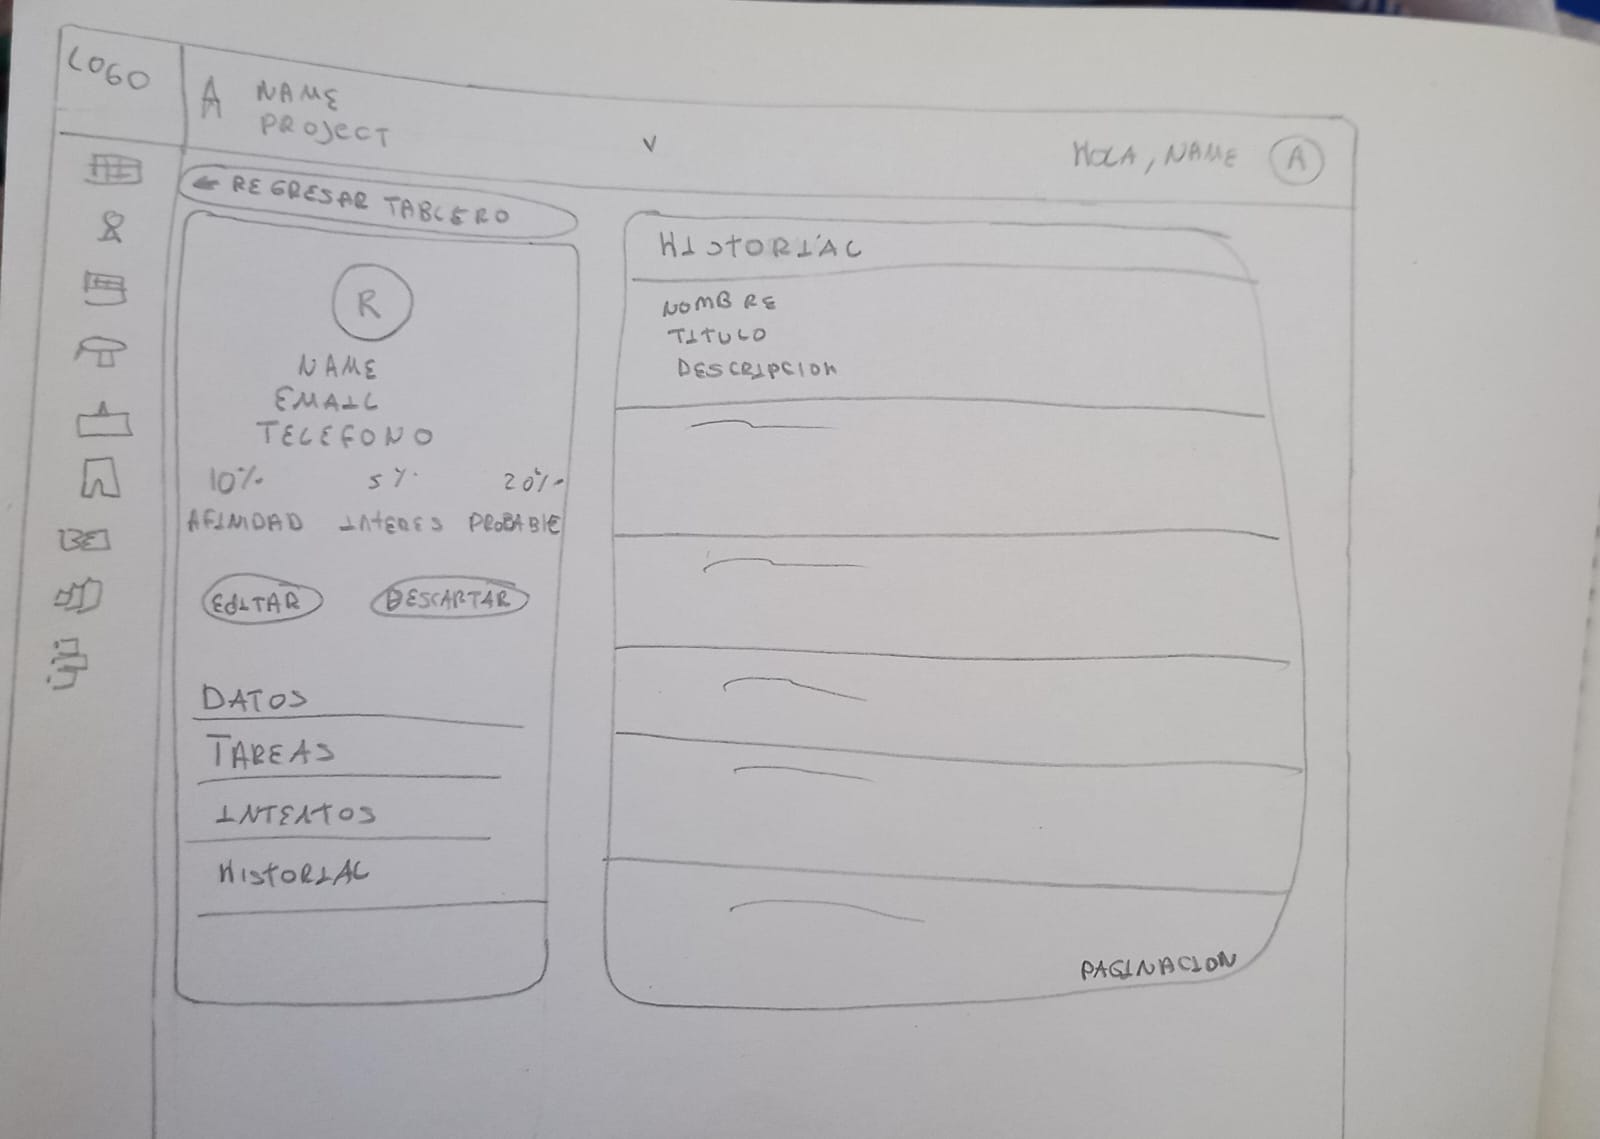 LOGO
A NAME
PROJECT
V
HOLA, NAME A
← REGRESAR TABLERO
R
NAME
EMAIL
TELEFONO
10% 5% 20%
AFINIDAD INTERES PROBABLE
EDITAR DESCARTAR
DATOS
TAREAS
INTENTOS
HISTORIAL
HISTORIAL
NOMBRE
TITULO
DESCRIPCION
PAGINACION